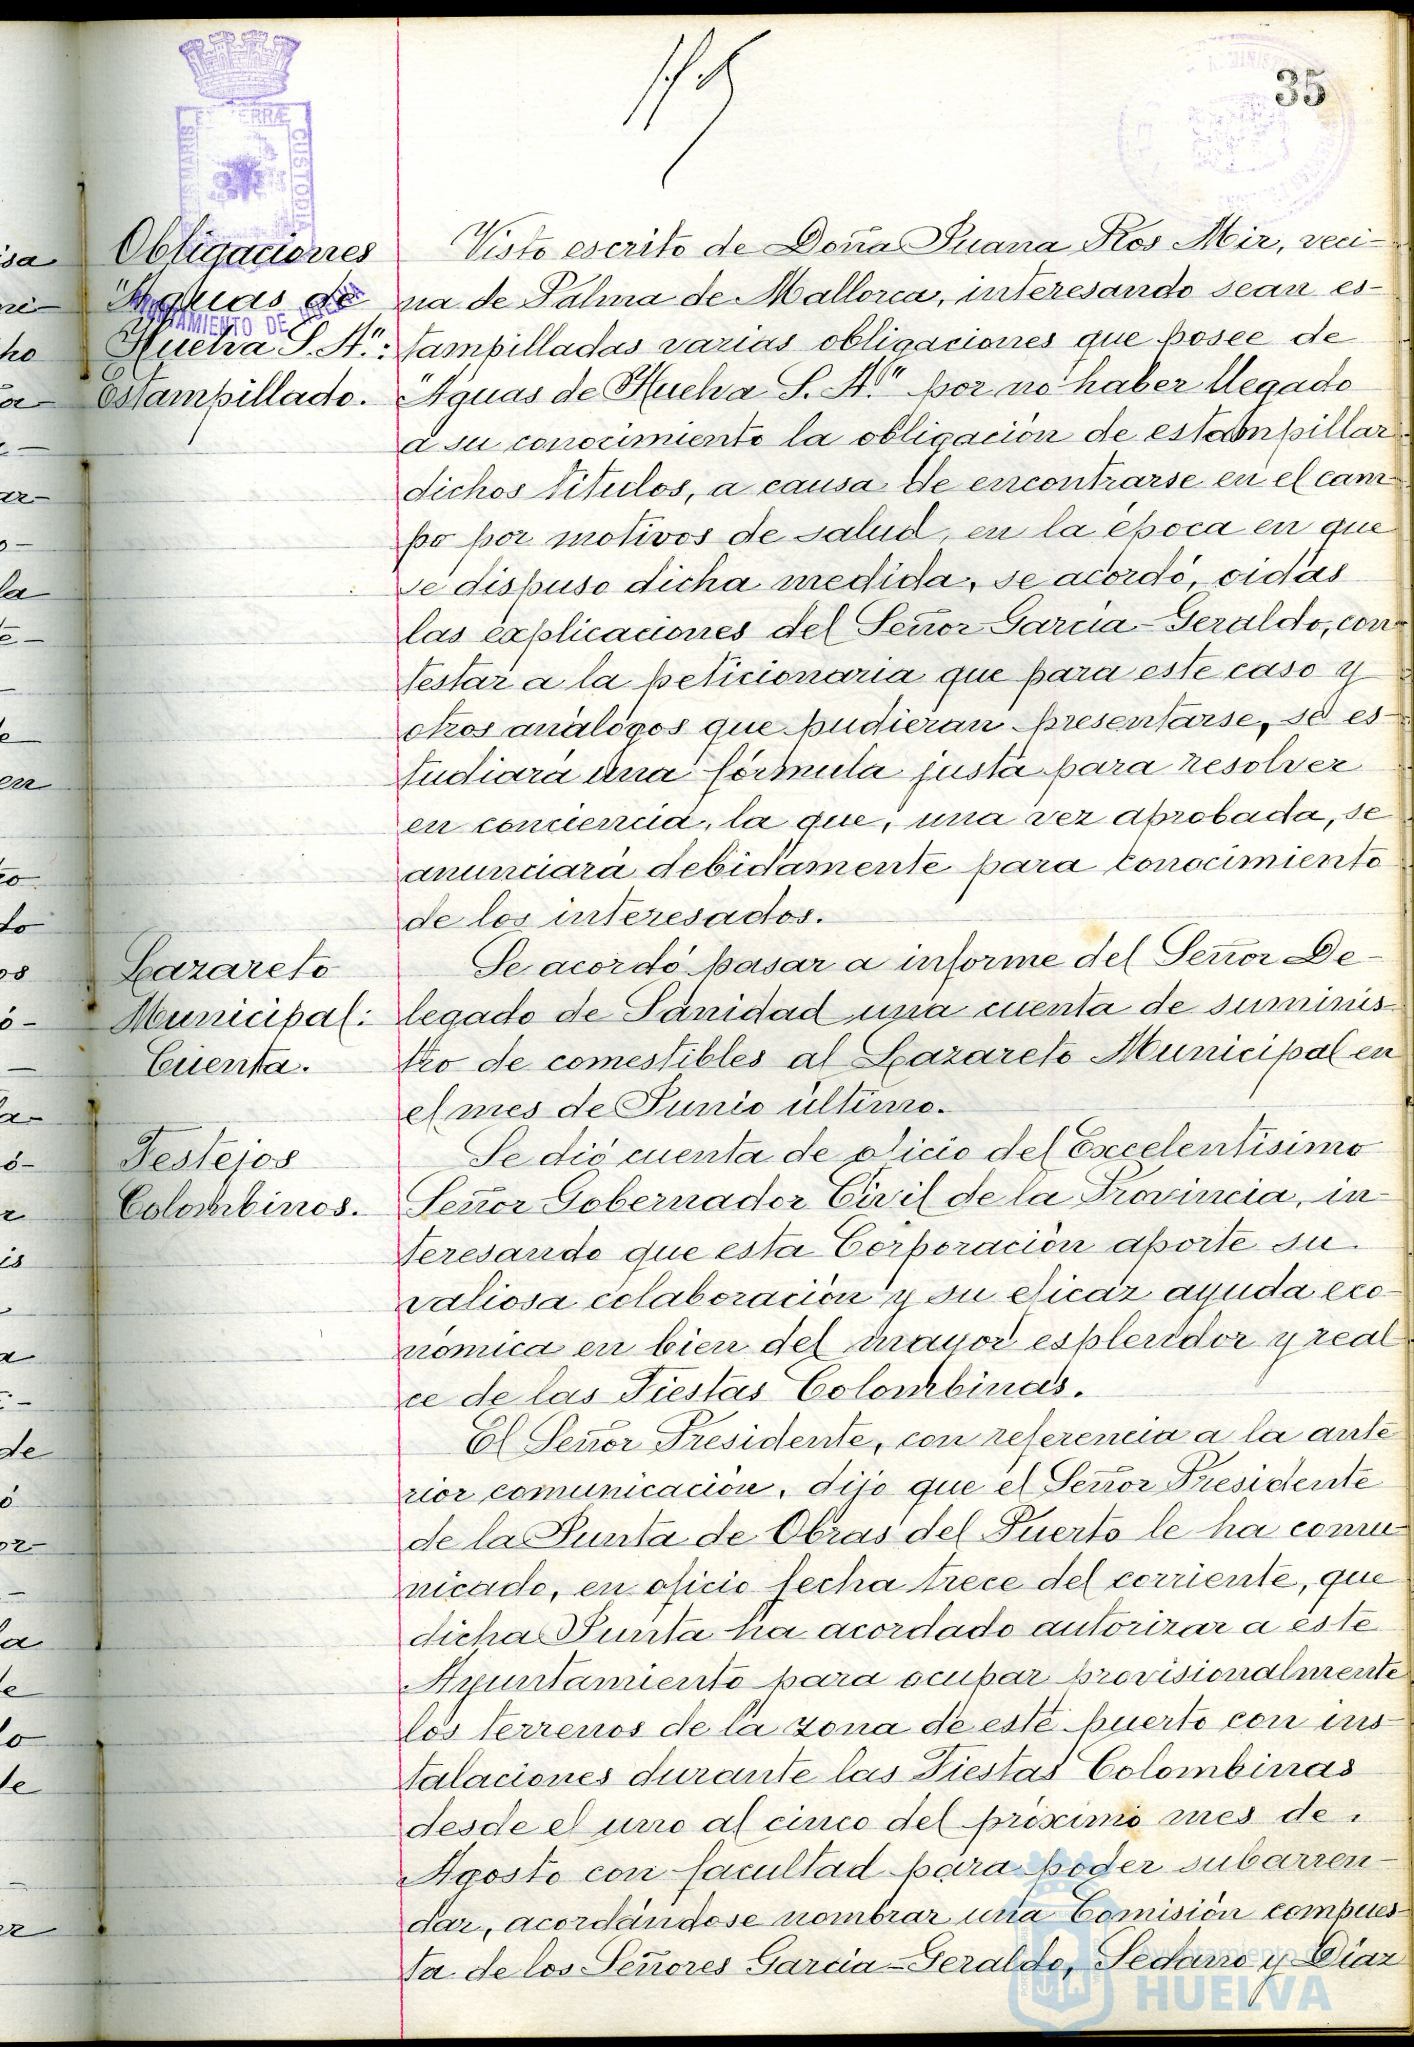 35
Obligaciones
"Aguas de
Huelva S. A.":
Estampillado.
Visto escrito de Doña Juana Ros Mir, veci-
na de Palma de Mallorca, interesando sean es-
tampilladas varias obligaciones que posee de
"Aguas de Huelva S. A." por no haber llegado
a su conocimiento la obligación de estampillar
dichos titulos, a causa de encontrarse en el cam-
po por motivos de salud, en la época en que
se dispuso dicha medida, se acordó, oidas
las explicaciones del Señor Garcia-Geraldo, con-
testar a la peticionaria que para este caso y
otros análogos que pudieran presentarse, se es-
tudiará una fórmula justa para resolver
en conciencia, la que, una vez aprobada, se
anunciará debidamente para conocimiento
de los interesados.
Lazareto
Municipal:
Cuenta.
Se acordó pasar a informe del Señor De-
legado de Sanidad una cuenta de suminis-
tro de comestibles al Lazareto Municipal en
el mes de Junio último.
Festejos
Colombinos.
Se dió cuenta de oficio del Excelentisimo
Señor Gobernador Civil de la Provincia, in-
teresando que esta Corporación aporte su
valiosa colaboración y su eficaz ayuda eco-
nómica en bien del mayor esplendor y real-
ce de las Fiestas Colombinas.
El Señor Presidente, con referencia a la ante-
rior comunicación, dijo que el Señor Presidente
de la Junta de Obras del Puerto le ha comu-
nicado, en oficio fecha trece del corriente, que
dicha Junta ha acordado autorizar a este
Ayuntamiento para ocupar provisionalmente
los terrenos de la zona de este puerto con ins-
talaciones durante las Fiestas Colombinas
desde el uno al cinco del próximo mes de
Agosto con facultad para poder subarren-
dar, acordándose nombrar una Comisión compues-
ta de los Señores Garcia-Geraldo, Sedano y Díaz
AYUNTAMIENTO DE HUELVA
CUSTODIA
Ayuntamiento de
HUELVA